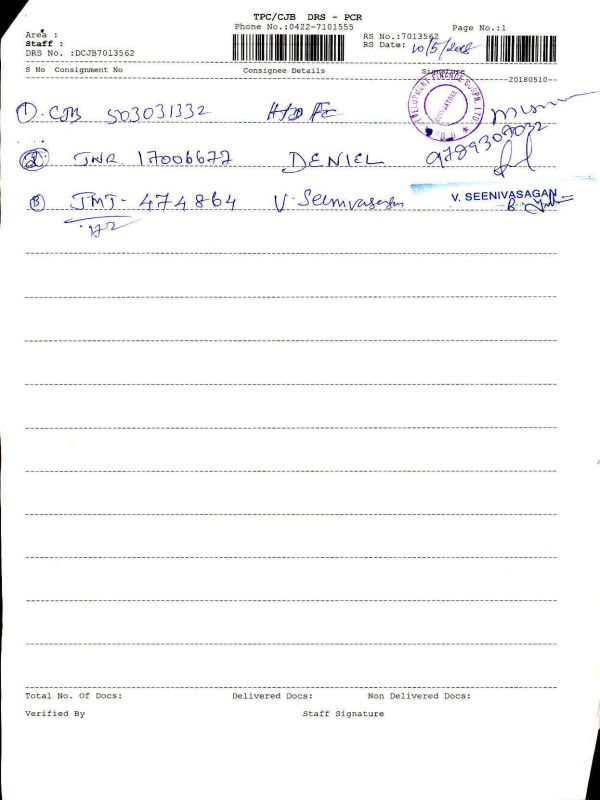 TPC/CJB DRS - PCR
Phone No.:0422-7101555
Page No.:1
Area :
RS No.:7013562
Staff :
RS Date: 10/5/2018
DRS No. :DCJB7013562
S No Consignment No Consignee Details Signature
20180510
① CJB 503031332 HDFC
DEVELOPMENT FINANCE CORPN. LTD
9789307032
② TNR 17006677 DENIEL
③ TMJ - 474864 V. Seenivasagan V. SEENIVASAGAN
Total No. Of Docs: Delivered Docs: Non Delivered Docs:
Verified By Staff Signature